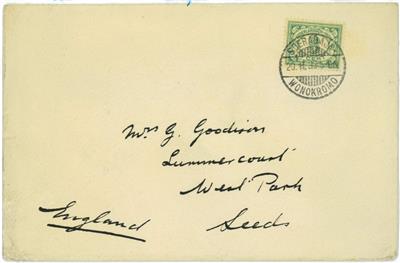 SOERABAJA
WONOKROMO
Mrs G. Goodison
Summercourt
West Park
Leeds
England